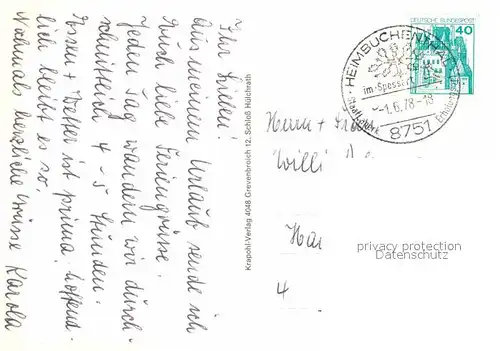 Ihr Lieben!
Aus meinem Urlaub sende ich
Euch liebe Feriengrüsse.
Jeden Tag wandern wir durch-
schnittlich 4 - 5 Stunden.
Essen + Wetter ist prima. hoffent-
lich bleibt es so.
Nochmals herzliche Grüsse Karola
Krapohl-Verlag 4048 Grevenbroich 12, Schloß Hülchrath
DEUTSCHE BUNDESPOST
40
HEIMBUCHENTHAL
im Spessart
-1.6.78-18
8751
Herrn + Frau
Willi
privacy protection
Datenschutz
4